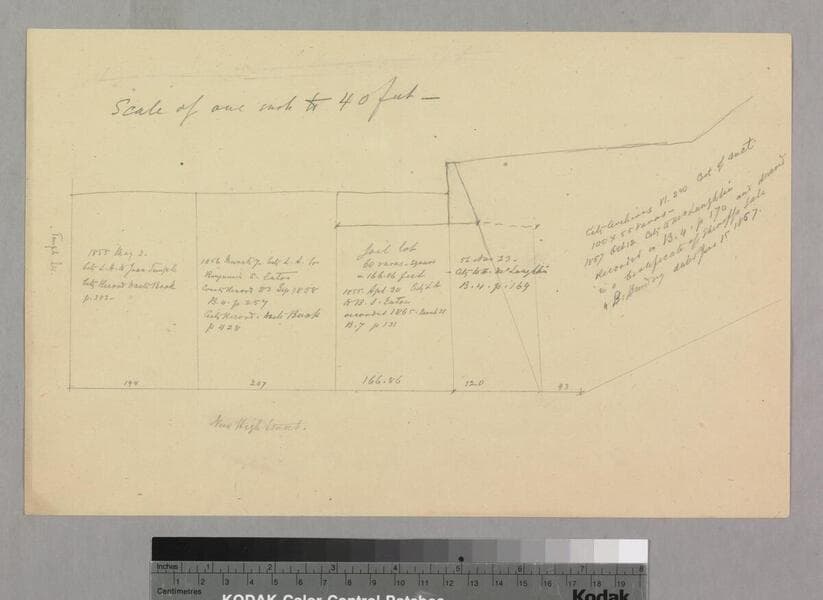 Scale of one inch to 40 feet —
1855 May 2.
City L.A. to Juan Temple
City Record Deed Book
p.
194
1856 March 7. City L.A. to
Benjamin S. Eaton
County Record Sep 1858
B.4. p 257
City Record. Deed Book
p 428
207
Jail lot
60 varas. square
= 166.86 feet
1855 Apl 30 City L.A.
to B. S. Eaton
recorded 1865. March
B.7 p 131
166.86
56 Nov 23 -
City to McLaughlin
B.4. p. 169
120
93
City Archives Vl. 2
100 x 55 varas -
1857 Oct 12 City to McLaughlin
Recorded in B.4. p 170 and deed
in a Certificate of Sheriffs Sale
dated Jan 15 1867.
Temple St.
New High Street.
Inches 1 2 3 4 5 6 7 8
Centimetres 1 2 3 4 5 6 7 8 9 10 11 12 13 14 15 16 17 18 19
KODAK Color Control Patches
Kodak